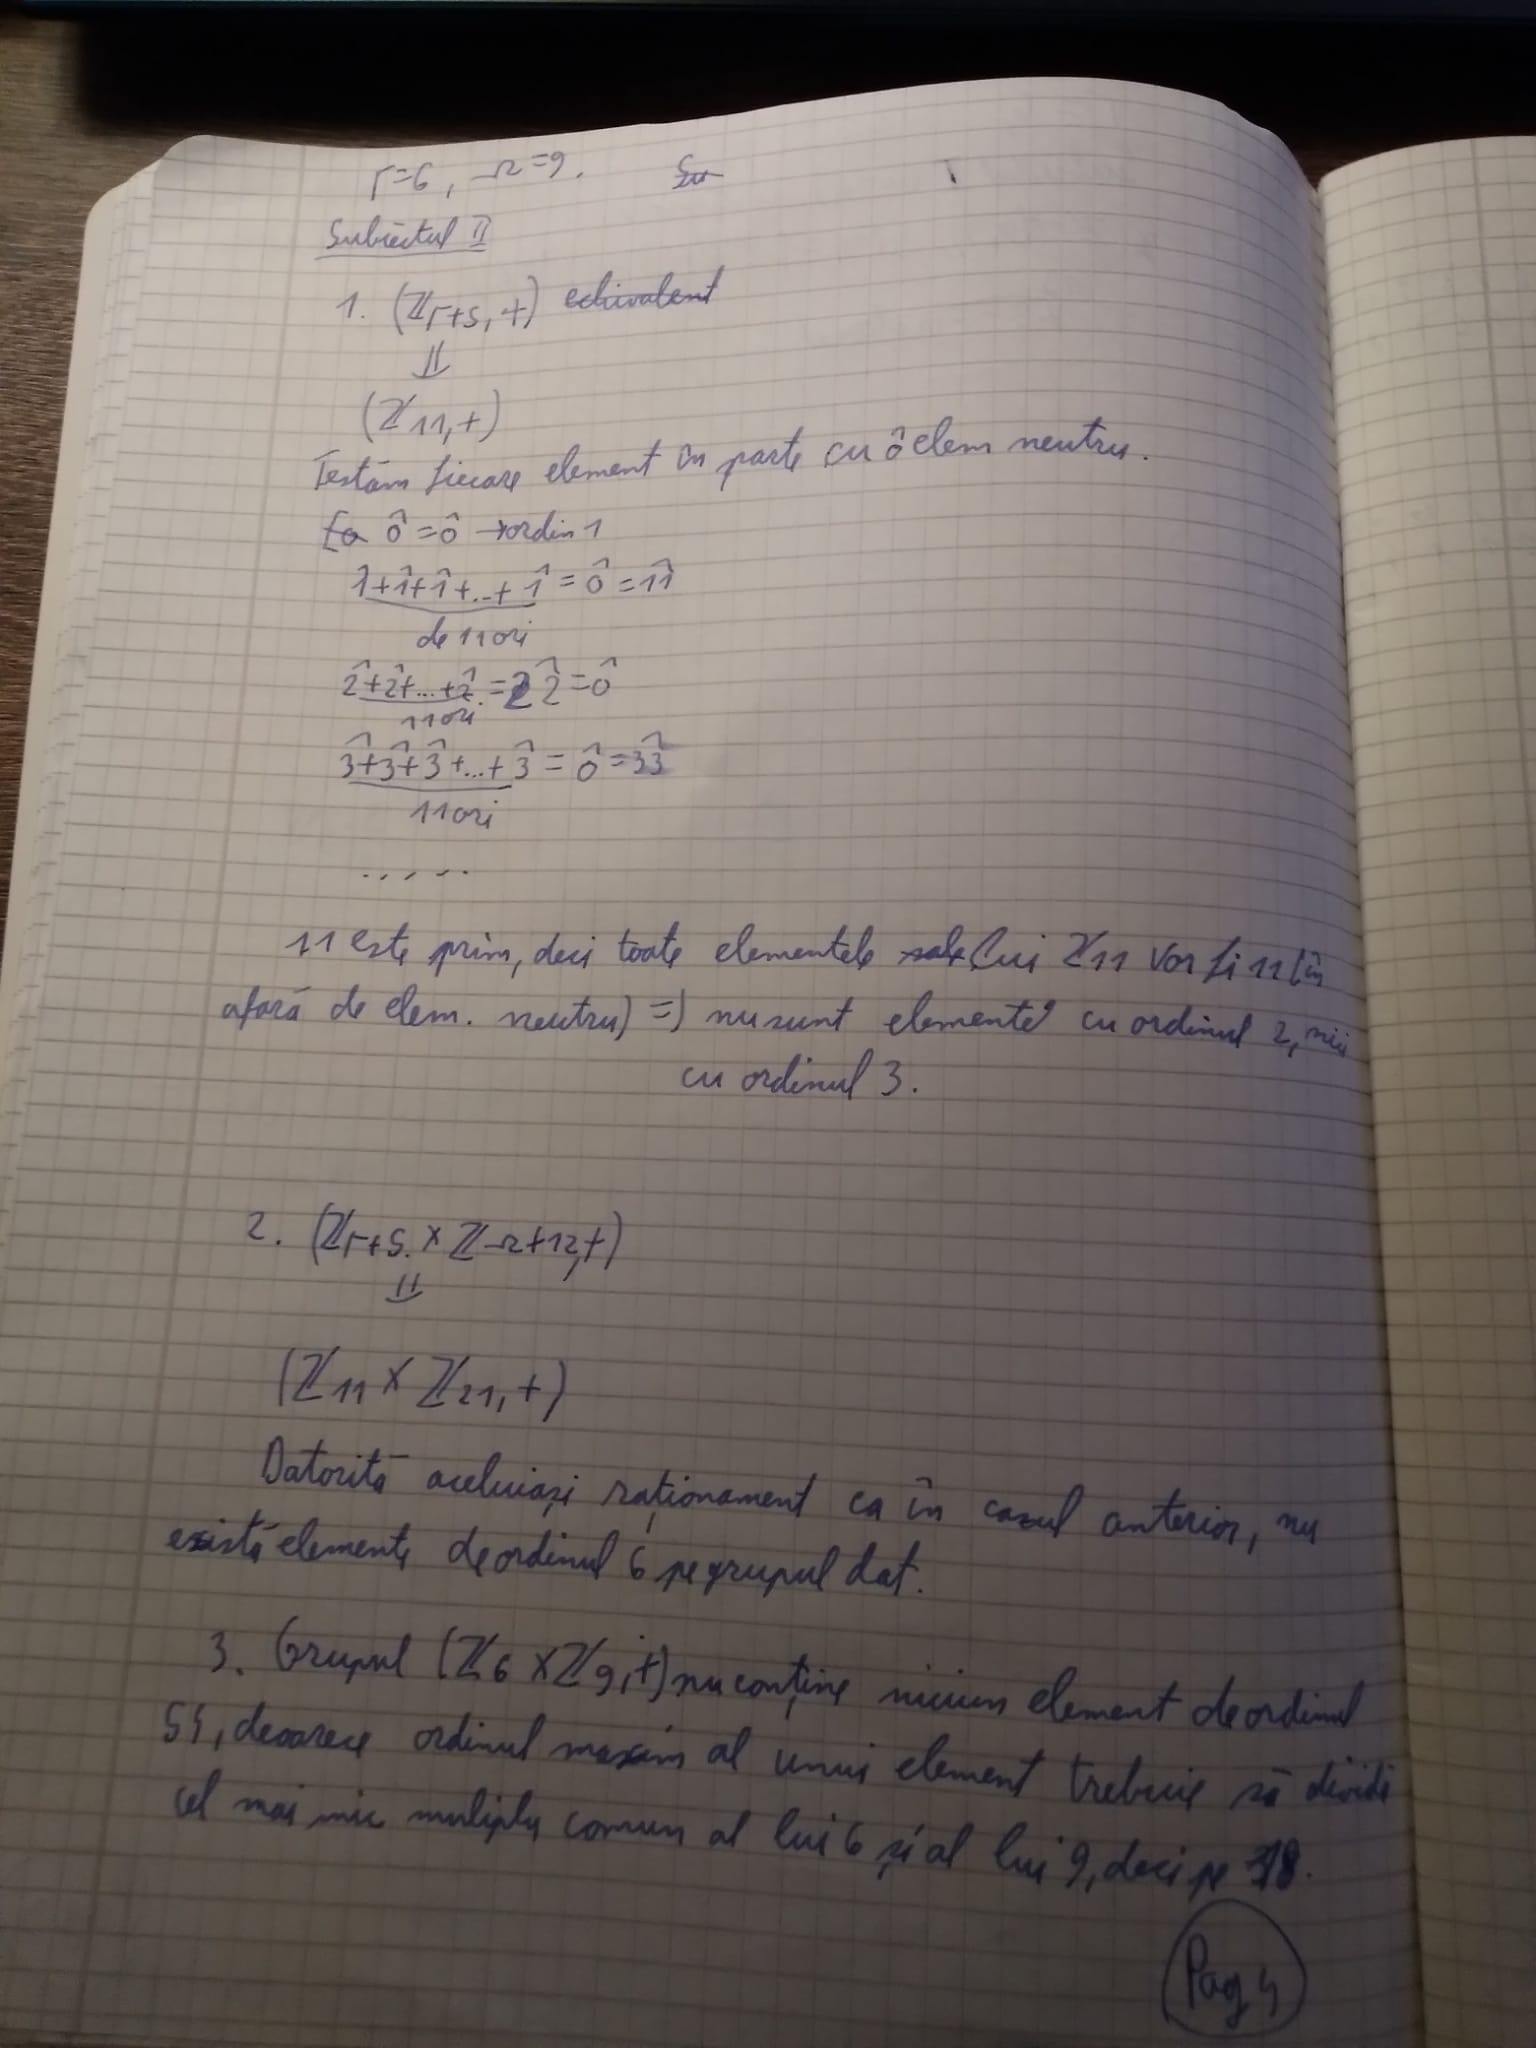 Γ=6, Ω=9.
Subiectul II
1. (ℤΓ+5, +) echivalent
⇓
(ℤ11, +)
Testăm fiecare element în parte cu 0̂ elem neutru.
0̂ = 0̂ → ordin 1
1̂+1̂+1̂+...+1̂ = 0̂ = 11̂
de 11 ori
2̂+2̂+...+2̂ = 22̂ = 0̂
11 ori
3̂+3̂+3̂+...+3̂ = 0̂ = 33̂
11 ori
.....
11 este prim, deci toate elementele lui ℤ11 vor fi 11 (în
afară de elem. neutru) => nu sunt elemente cu ordinul 2, nici
cu ordinul 3.
2. (ℤΓ+5 × ℤΩ+12, +)
⇓
(ℤ11 × ℤ21, +)
Datorită aceluiași raționament ca în cazul anterior, nu
există elemente de ordinul 6 pe grupul dat.
3. Grupul (ℤ6 × ℤ9, +) nu conține niciun element de ordinul
54, deoarece ordinul maxim al unui element trebuie să dividă
cel mai mic multiplu comun al lui 6 și al lui 9, deci pe 18.
Pag 4